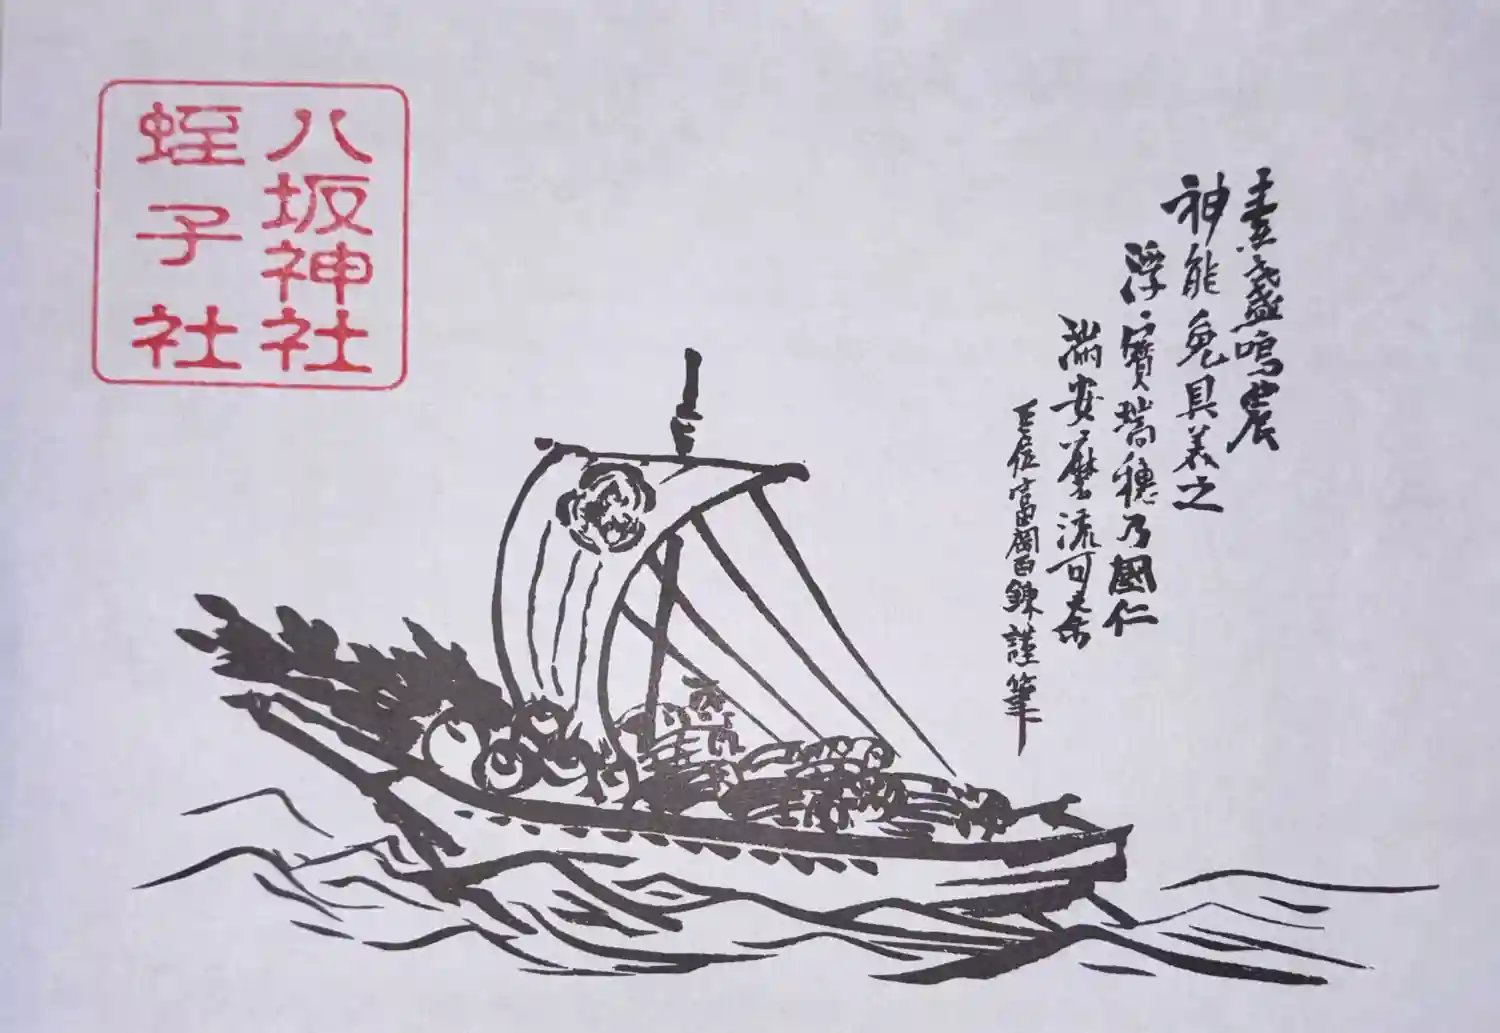 素盞嗚農
神能免具美之
浮寶瑞穂乃國仁
満安麼流可奈
位富岡百錬謹筆
八坂神社
蛭子社